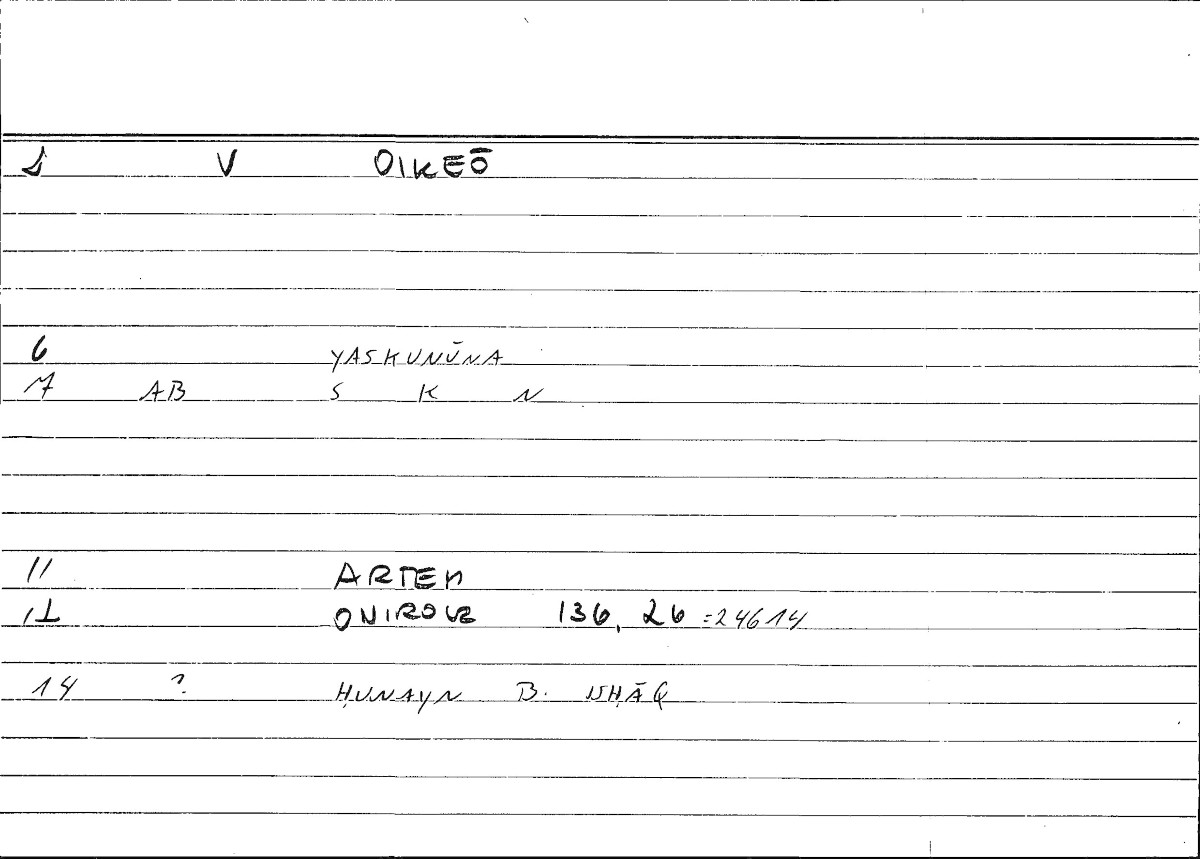 1 V OIKEŌ
6 YASKUNŪNA
7 AB S K N
11 ARTEM
12 ONIROCR 136, 26 =246 14
14 ? ḤUNAYN B. ISḤĀQ